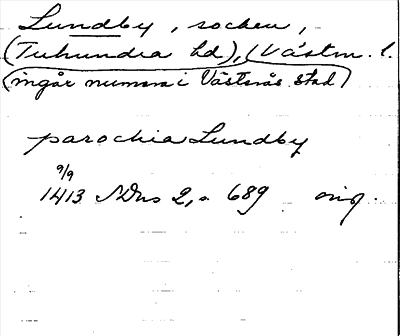 Lundby, socken,
(Tuhundra hd), (Västm. l.
(ingår numera i Västerås stad)
parochia Lundby
9/9
1413 SDns 2, s. 689 orig.